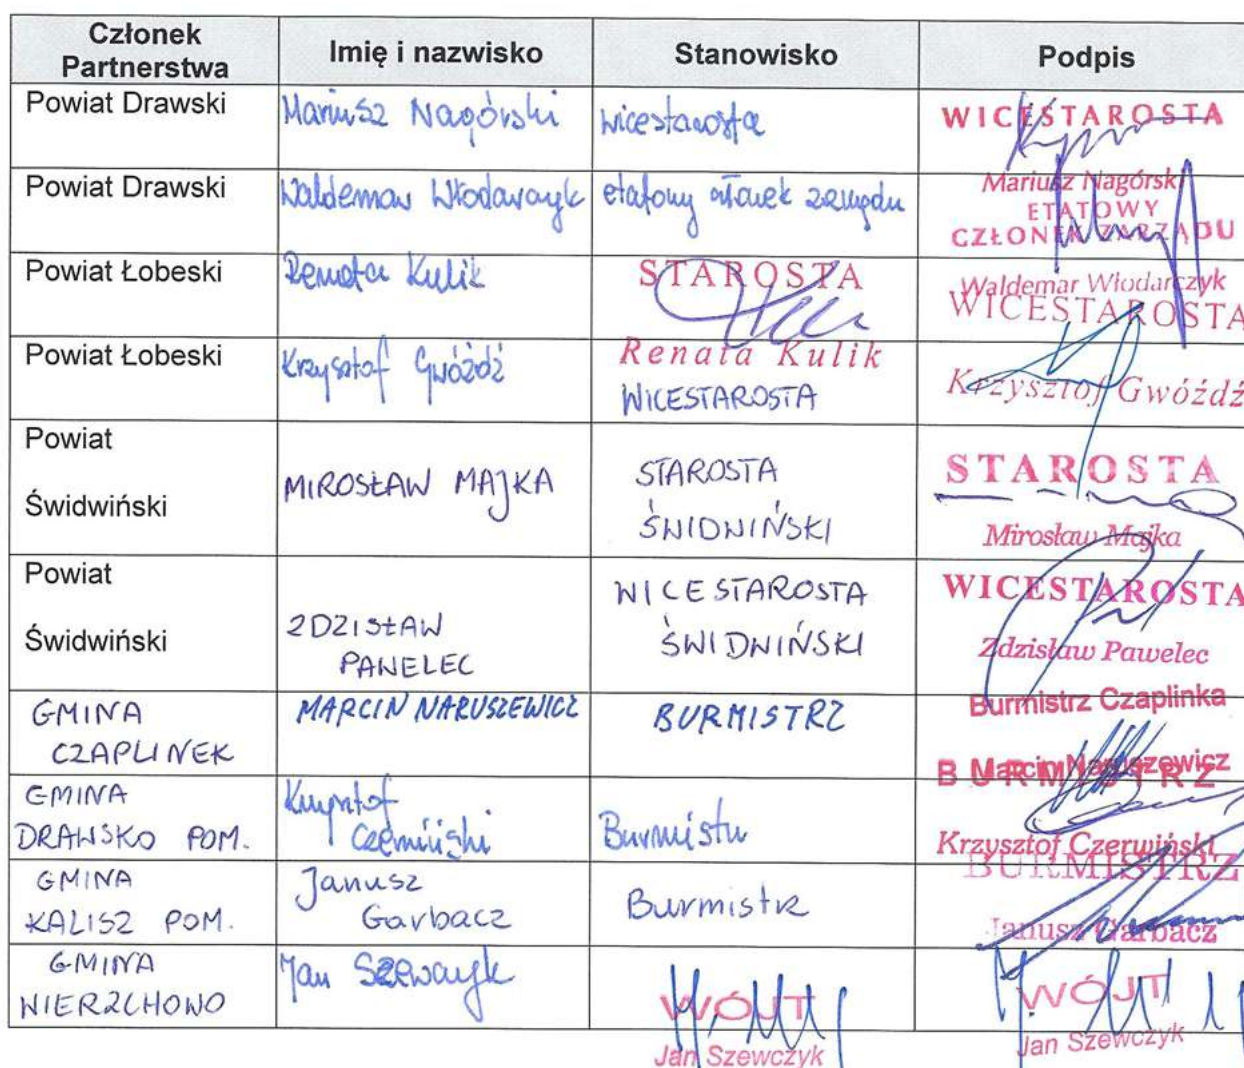 Członek Partnerstwa
Imię i nazwisko
Stanowisko
Podpis
Powiat Drawski
Mariusz Nagórski
wicestarosta
WICESTAROSTA
Mariusz Nagórski
Powiat Drawski
Waldemar Włodarczyk
etatowy członek zarządu
ETATOWY
CZŁONEK ZARZĄDU
Waldemar Włodarczyk
Powiat Łobeski
Renata Kulik
STAROSTA
Renata Kulik
Powiat Łobeski
Krzysztof Gwóźdź
WICESTAROSTA
WICESTAROSTA
Krzysztof Gwóźdź
Powiat
Świdwiński
MIROSŁAW MAJKA
STAROSTA
ŚWIDWIŃSKI
STAROSTA
Mirosław Majka
Powiat
Świdwiński
ZDZISŁAW
PAWELEC
WICESTAROSTA
ŚWIDWIŃSKI
WICESTAROSTA
Zdzisław Pawelec
GMINA
CZAPLINEK
MARCIN NARUSZEWICZ
BURMISTRZ
Burmistrz Czaplinka
Marcin Naruszewicz
GMINA
DRAWSKO POM.
Krzysztof
Czerwiński
Burmistrz
BURMISTRZ
Krzysztof Czerwiński
GMINA
KALISZ POM.
Janusz
Garbacz
Burmistrz
BURMISTRZ
Janusz Garbacz
GMINA
WIERZCHOWO
Jan Szewczyk
WÓJT
Jan Szewczyk
WÓJT
Jan Szewczyk